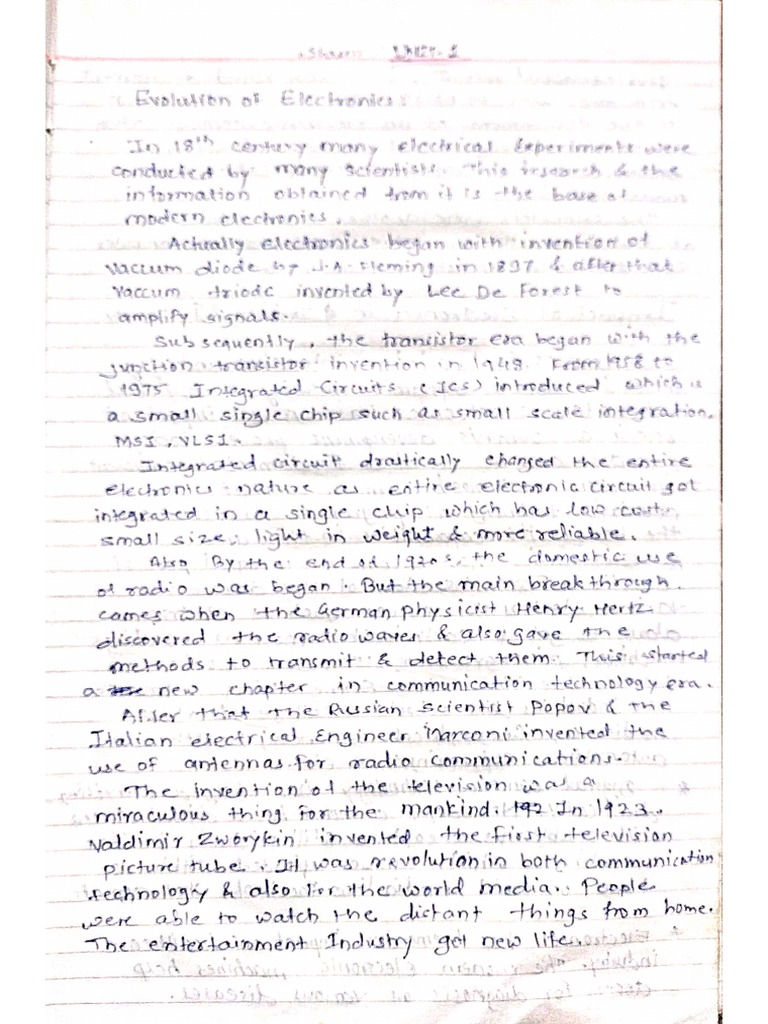 Unit-1
Evolution of Electronics:
In 18th century many electrical Experiments were
conducted by many scientists. This research & the
information obtained from it is the base of
modern electronics.
Actually electronics began with invention of
Vaccum diode by J.A. Fleming in 1897 & after that
Vaccum triode invented by Lee De Forest to
amplify signals.
Subsequently, the transistor era began with the
junction transistor invention in 1948. From 1958 to
1975 Integrated Circuits (ICs) introduced which is
a small single chip such as small scale integration,
MSI, VLSI.
Integrated circuit drastically changed the entire
electronics nature as entire electronic circuit got
integrated in a single chip which has low cost,
small size, light in weight & more reliable.
Also By the end of 1920s, the domestic use
of radio was began. But the main breakthrough
comes when the German physicist Henry Hertz
discovered the radio waves & also gave the
methods to transmit & detect them. This started
a new chapter in communication technology era.
After that the Russian scientist Popov & the
Italian electrical Engineer Marconi invented the
use of antennas for radio communications.
The invention of the television was a
miraculous thing for the mankind. In 1923.
Valdimir Zworykin invented the first television
picture tube. It was revolution in both communication
technology & also for the world media. People
were able to watch the distant things from home.
The entertainment Industry got new life.